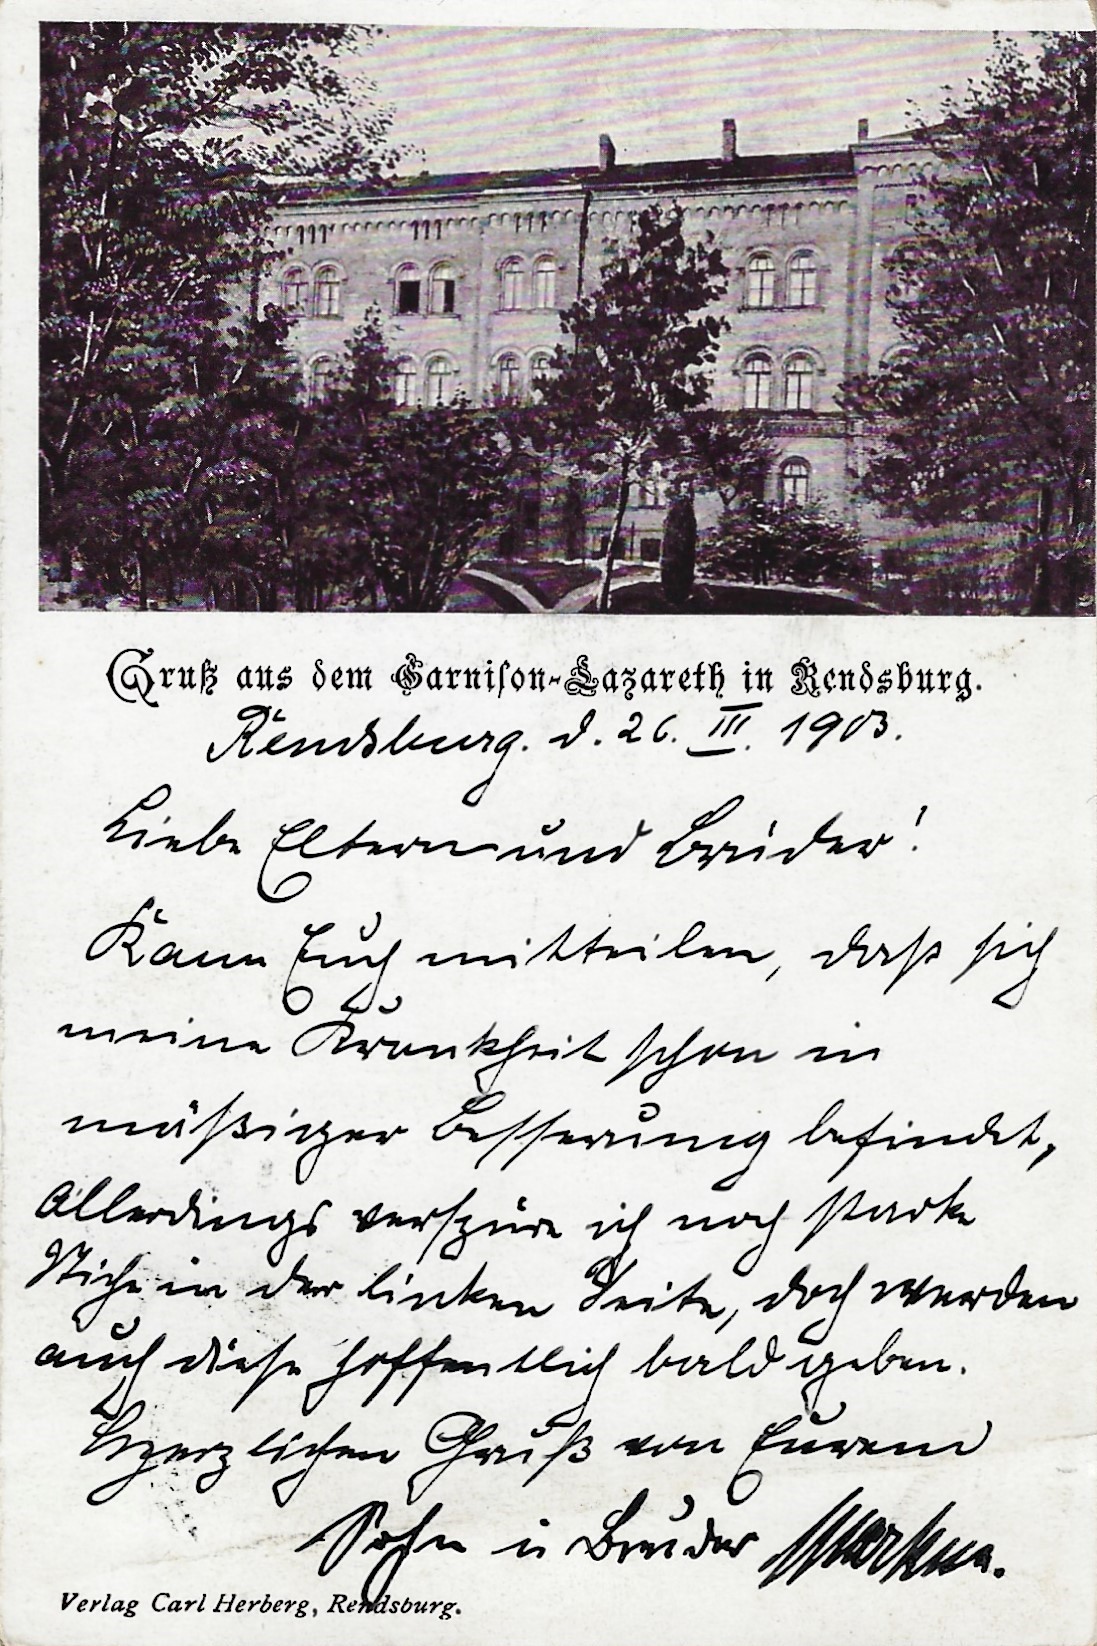 Gruß aus dem Garnison-Lazareth in Rendsburg.
Rendsburg. d. 26. III. 1903.
Liebe Eltern und Brüder!
Kann Euch mitteilen, daß sich
meine Krankheit schon in
mäßiger Besserung befindet,
Allerdings verspüre ich noch starke
Stiche in der linken Seite, doch werden
auch diese hoffentlich bald geben.
Herzlichen Gruß von Eurem
Sohn u Bruder
Verlag Carl Herberg, Rendsburg.